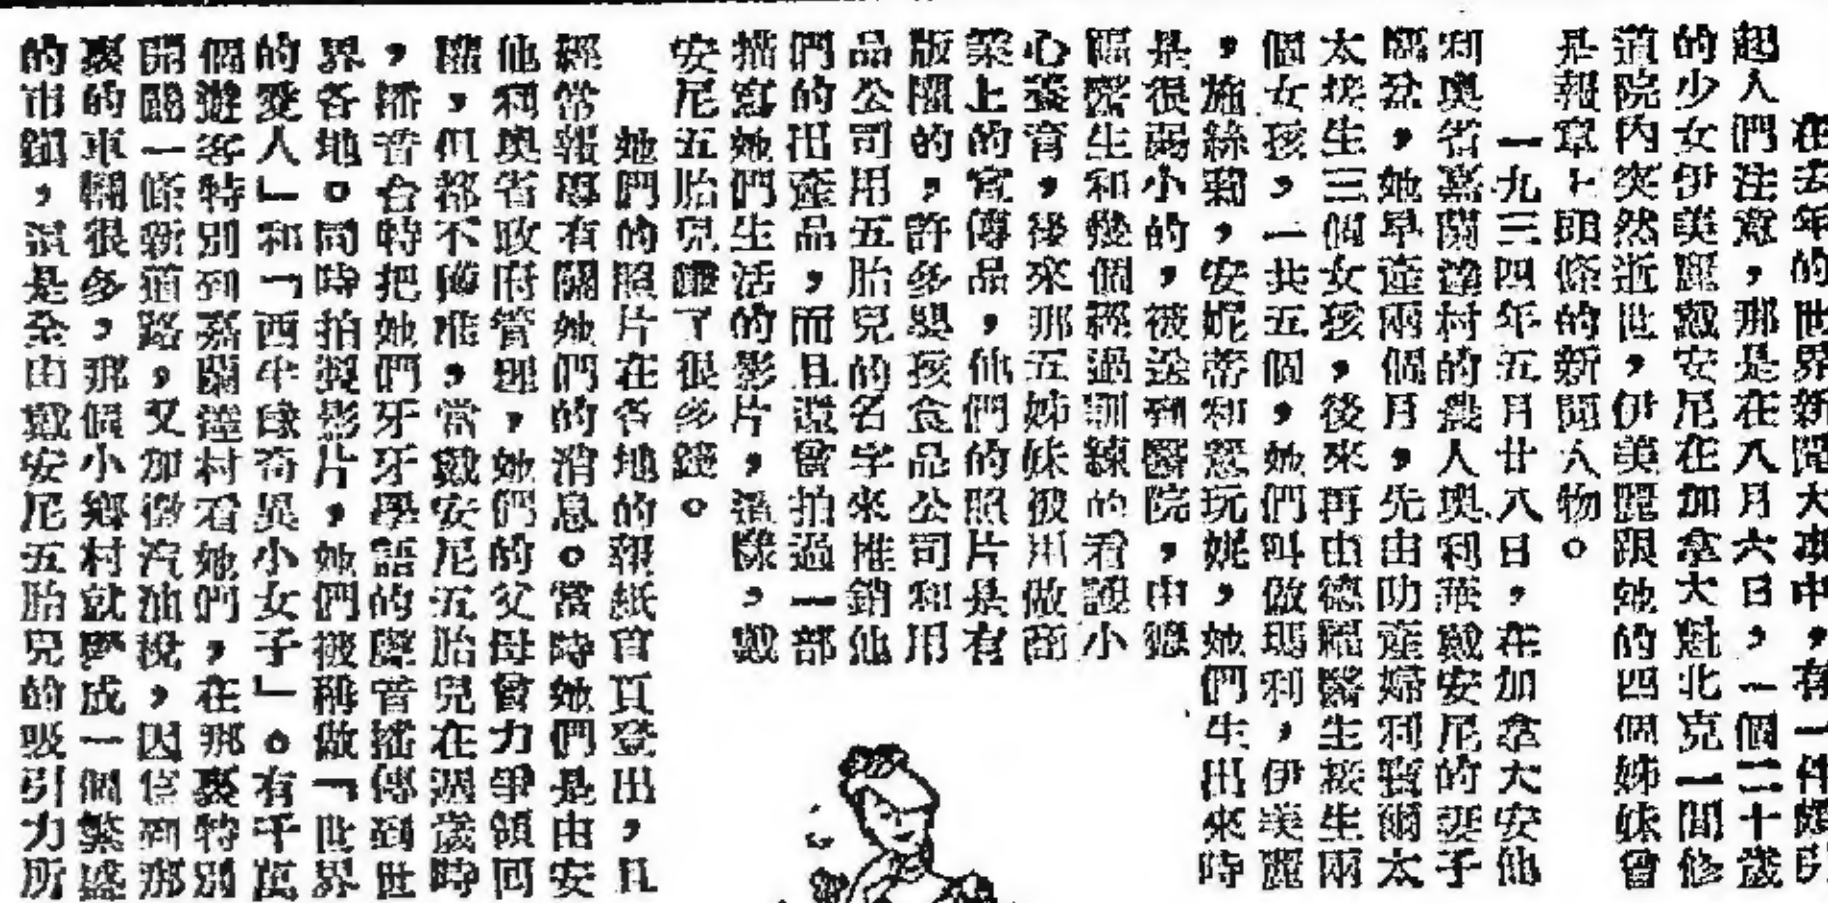 在去年的世界新聞大事中，有一件頗引
起人們注意，那是在八月六日，一個二十歲
的少女伊美麗戴安尼在加拿大魁北克一間修
道院內突然逝世，伊美麗跟她的四個姊妹曾
是報章上頭條的新聞人物。
一九三四年五月廿八日，在加拿大安他
利奧省嘉蘭達村的農人奧利華戴安尼的妻子
臨盆，她早產兩個月，先由助產婦利賓爾太
太接生，三個女孩，後來再由德福醫生接生兩
個女孩，一共五個，她們叫做瑪利，伊美麗
，施絲莉，安妮蒂和意玩妮，她們生出來時
是很弱小的，被送到醫院，由德
福醫生和幾個經過訓練的看護小
心養育，後來那五姊妹被用做商
業上的宣傳品，他們的照片是有
版權的，許多嬰孩食品公司和用
品公司用五胎兒的名字來推銷他
們的出產品，而且還曾拍過一部
描寫她們生活的影片，這樣，戴
安尼五胎兒賺了很多錢。
她們的照片在各地的報紙首頁登出，且
經常報導有關她們的消息。當時她們是由安
他利奧省政府管理，她們的父母曾力爭領回
權，但都不獲准，當戴安尼五胎兒在週歲時
，播音台特把她們牙牙學語的聲音播傳到世
界各地。同時拍製影片，她們被稱做「世界
的愛人」和「西半球奇異小女子」。有千萬
個遊客特別到嘉蘭達村看她們，在那裏特別
開闢一條新道路，又加徵汽油稅，因為到那
裏的車輛很多，那個小鄉村就變成一個繁盛
的市鎮，這是全由戴安尼五胎兒的吸引力所